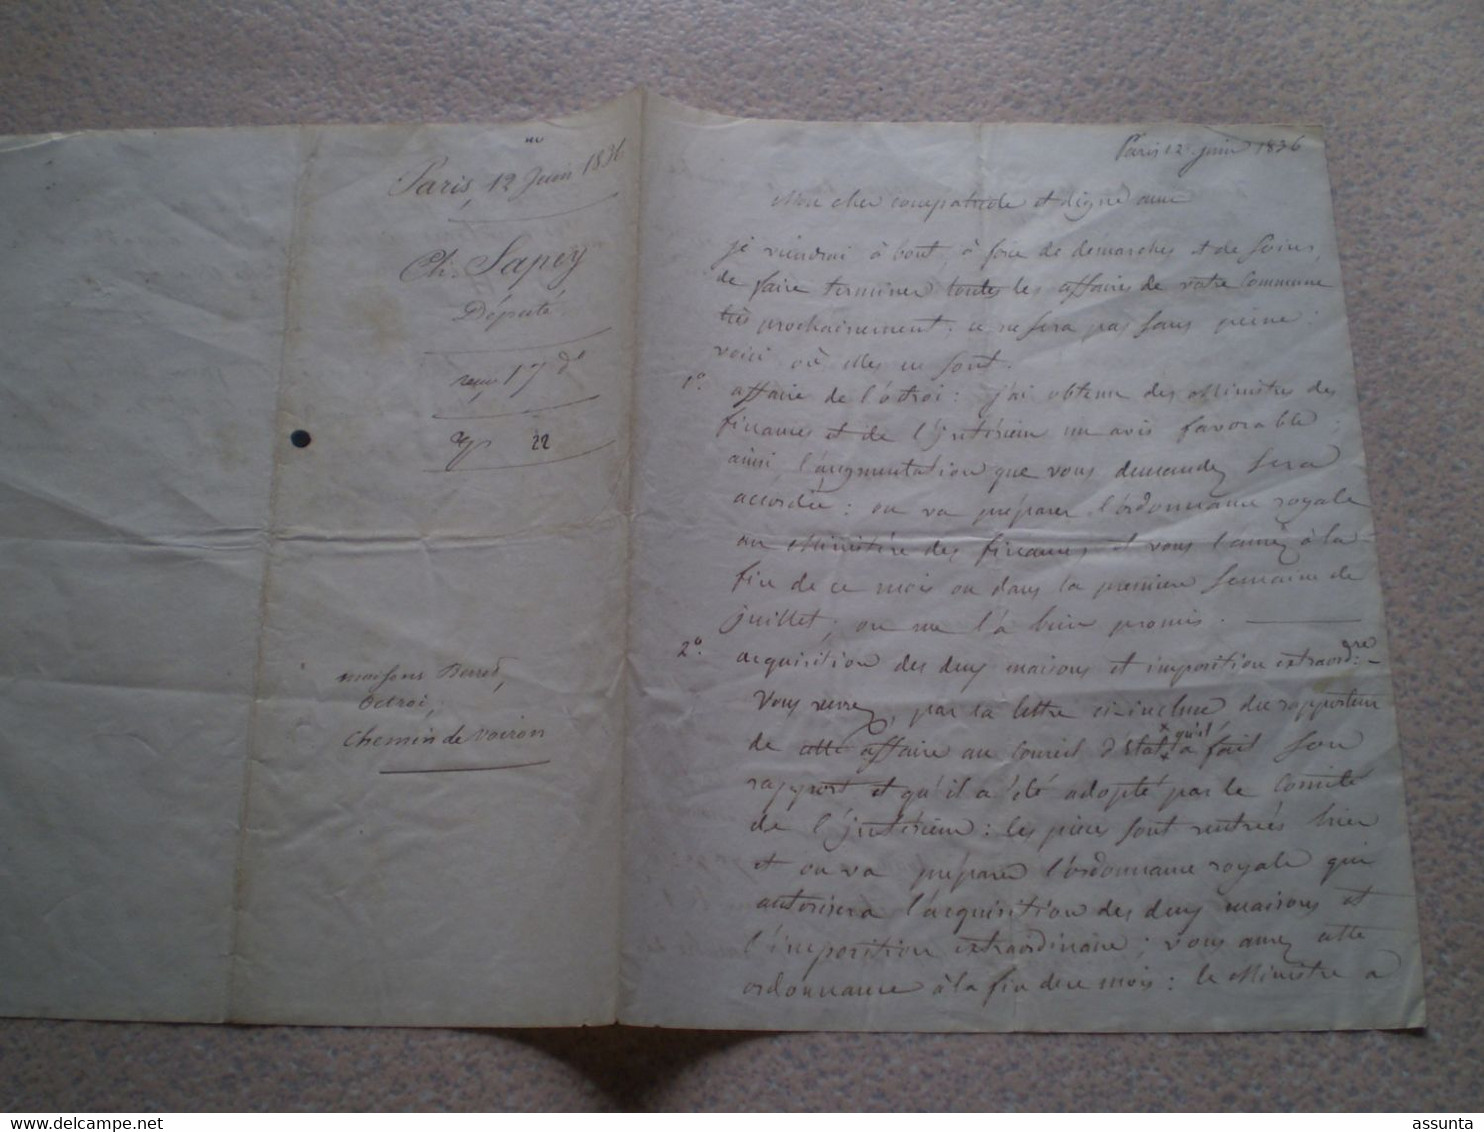 Paris, 12 Juin 1836
Ch. Sapey
Député
reçu 17 do
22
maisons
Octroi,
Chemin de Voiron
Paris 12 juin 1836
Mon cher compatriote et digne ami
je viendrai à bout, à force de demarches et de soins,
de faire terminer toutes les affaires de votre Commune
très prochainement; ce ne sera pas sans peine:
voici où elles en sont.
1o. affaire de l'octroi: j'ai obtenu des Ministres des
finances et de l'Intérieur un avis favorable:
ainsi l'augmentation que vous demandez sera
accordée: on va préparer l'ordonnance royale
au Ministère des finances et vous l'aurez à la
fin de ce mois ou dans la première semaine de
juillet; on me l'a bien promis.
2o. acquisition des deux maisons et imposition extraordre:
Vous verrez, par la lettre ci-incluse du rapporteur
de cette affaire au Conseil d'état, qu'il a fait son
rapport et qu'il a été adopté par le Comité
de l'Intérieur: les pièces sont rentrées hier
et on va préparer l'ordonnance royale qui
autorisera l'acquisition des deux maisons et
l'imposition extraordinaire; vous aurez cette
ordonnance à la fin de ce mois: le Ministre a
DELCAMPE.NET
assunta